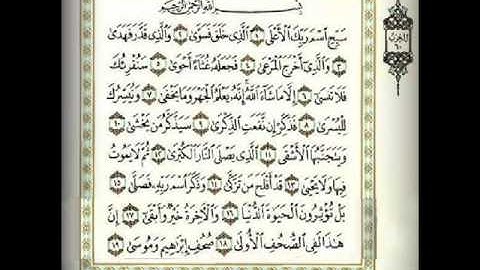 بِسْمِ اللَّهِ الرَّحْمَٰنِ الرَّحِيمِ
سَبِّحِ اسْمَ رَبِّكَ الْأَعْلَى ١ الَّذِي خَلَقَ فَسَوَّىٰ ٢ وَالَّذِي قَدَّرَ فَهَدَىٰ
٣ وَالَّذِي أَخْرَجَ الْمَرْعَىٰ ٤ فَجَعَلَهُ غُثَاءً أَحْوَىٰ ٥ سَنُقْرِئُكَ
فَلَا تَنسَىٰ ٦ إِلَّا مَا شَاءَ اللَّهُ إِنَّهُ يَعْلَمُ الْجَهْرَ وَمَا يَخْفَىٰ ٧ وَنُيَسِّرُكَ
لِلْيُسْرَىٰ ٨ فَذَكِّرْ إِن نَّفَعَتِ الذِّكْرَىٰ ٩ سَيَذَّكَّرُ مَن يَخْشَىٰ ١٠
وَيَتَجَنَّبُهَا الْأَشْقَى ١١ الَّذِي يَصْلَى النَّارَ الْكُبْرَىٰ ١٢ ثُمَّ لَا يَمُوتُ
فِيهَا وَلَا يَحْيَىٰ ١٣ قَدْ أَفْلَحَ مَن تَزَكَّىٰ ١٤ وَذَكَرَ اسْمَ رَبِّهِ فَصَلَّىٰ ١٥
بَلْ تُؤْثِرُونَ الْحَيَوٰةَ الدُّنْيَا ١٦ وَالْآخِرَةُ خَيْرٌ وَأَبْقَىٰ ١٧ إِنَّ
هَٰذَا لَفِي الصُّحُفِ الْأُولَىٰ ١٨ صُحُفِ إِبْرَاهِيمَ وَمُوسَىٰ ١٩
الحزب
٦٠